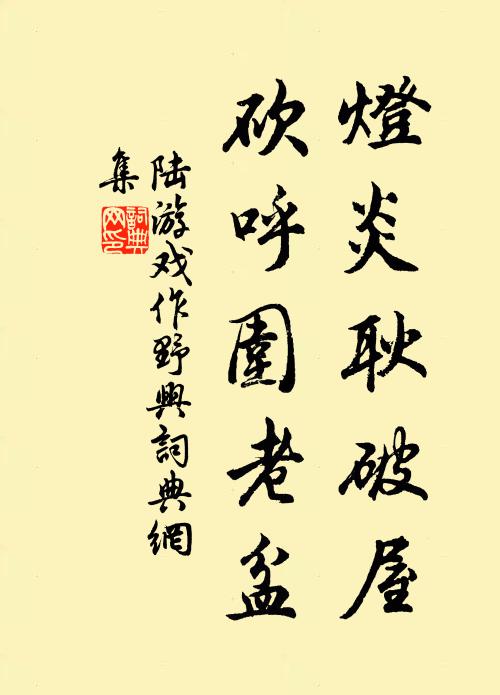 燈炎耿破屋
砍呼圍老盆
陆游戏作野興詞典網
集
詞典
网印